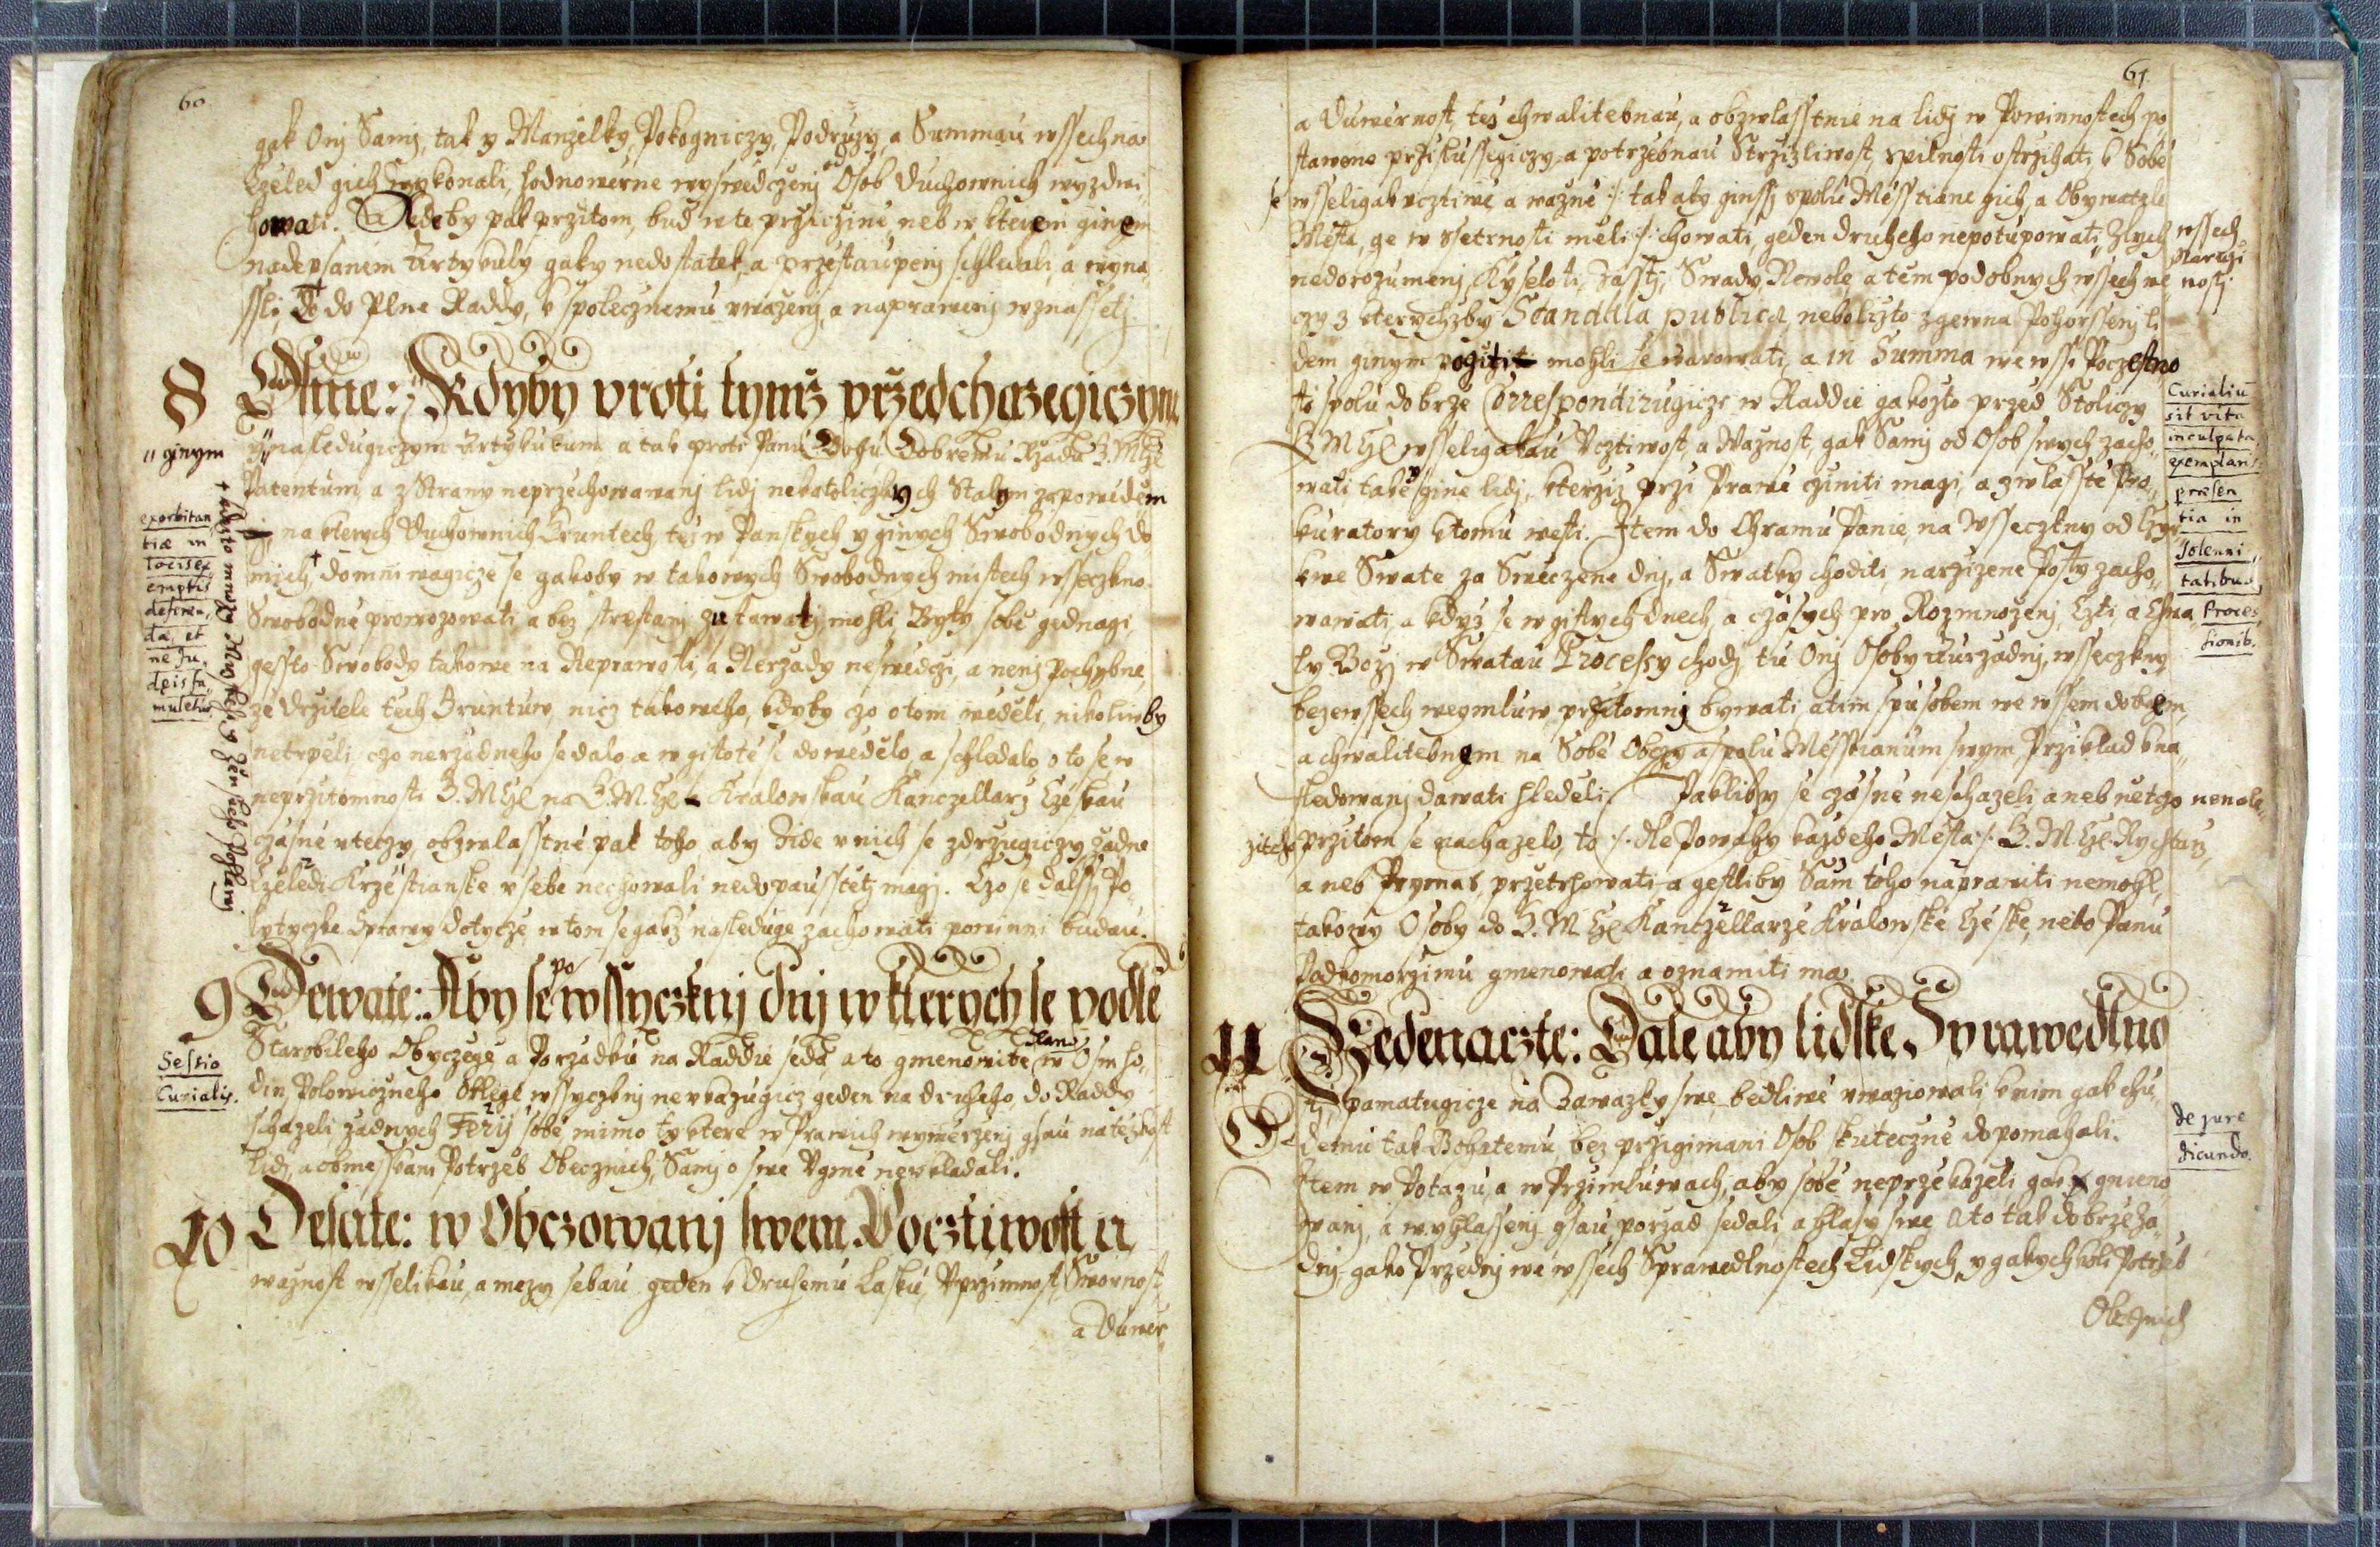 60
gak Onj Samj, tak y Manzelky, Pokogniczy, Podruzy, a Summau wssechna
Czeled gich wykonali, hodnowerne wyswedczenj od Osob Duchownich wyzdwi
howati. Kdeby pak przitom, bud w te prziczine, neb w kterem ginem
nadepsanem Artykuly gaky nedostatek, a przestaupenj shledali, a wyna
ssli, do Plne Raddy, k spolecznemu uwazenj, a naprawenj wznassetj.
8 Osme: Kdyby proti tymz przedchazegiczym
" ginym
y nasledugiczym Artykulum a tak proti Panu Bohu Dobremu Rzadu G. M. Cz.
Patentum, a z Strany neprzechowawanj lidj nekatoliczkych Stalym zapowedem
na kterych Duchownich Gruntech, tez w Panskych y ginych Swobodnych do
mich, domniwagicze se gakoby w takowych Swobodnych mistech wsseczkno
Swobodne prowozowati, a bez trestanj zustawati mohli Byty sobe gednagi,
gessto Swobody takowe na Neprawosti, a Nerzady neswedczi, a nenj Pochybne,
ze drzitele tech Gruntuw, nicz takoweho, kdyby czo o tom wedeli, nikoliw by
netrpeli, czo nerzadneho se dalo a w gistote se dowedelo, a shledalo, o to se w
neprzitomnosti G. M. Cz. na G. M. Cz. Kralowskau Kanczellarz Czeskau
czasne uteczy, obzwlasstne pak toho, aby Zide u nich se zdrzugiczy zadne
Czeledi Krzestianske u sebe nechowali nedopausstetj magj. Czo se dalssy Po
lytyczke Sprawy dotycze, w tom se gakz nasleduge zachowati powinni budau.
exorbitan
tiæ in
locis ex
emptis
defen,
da, et
ne Ju,
dæis fa,
muletur
9 Dewate: Aby se po wssyczknj dnj w kterych se podle
Starobileho Obyczege, a Porzadku na Raddie seda, a to gmenowite w Osm ho,
din, Polowiczneho Orloge wssyczknj neukazugicz geden na druheho, do Raddy
schazeli, zadnych Ferij sobe, mimo ty ktere w Prawich wymerzenj gsau na tezkost
lidj, a obmesskanj Potrzeb Obecznich, Samj o swe Ugme neukladali.
Sessio
Curialis.
10 Desate: w Obczowanj swem Poczitiwost a
waznost wsselikau, a mezy sebau geden k druhemu Lasku, Uprzimnost, Swornost,
a Duwer,
61
a Duwernost, tez chwalitebnau, a obzwlasstnie na lidj w Powinnostech po,
stawene przislussegiczy, a potrzebnau Strzizliwost, s pilnosti ostrzihati, k Sobe
se wsseligak ucztiwe, a wazne :/: tak aby ginssj spolu Messtiane gich, a Obywatele
Mesta, ge w ssetrnosti meli :/: chowati, geden druheho nepotupowati, Zlych wssech
nedorozumenj, Kyselosti, Zasstj, Swady, Newole, a tem podobnych wssech we
czy z kterychzby Scandala publica nebolizto zgewna Pohorssenj li
dem ginym pogiti mohli se warowati, a in Summa we wssi Poczestno
sti spolu dobrze Correspondirugicze w Raddie gakozto przed Stoliczy
G. M. Cz. wsseligakau Ucztiwost, a Waznost, gak Samj od Osob swych zacho,
wati, take y gine lidj, kterziz przi Prawe cziniti magi, a zwlasste Pro,
kuratory k tomu westi. Item do Chramu Panie, na wsseczkny od Czyr,
kwe Swate za Swieczene dnj, a Swatky choditi, narzizene Posty zacho,
wawati, a kdyz se w gistych dnech, a czasych pro Rozmnozenj Czti a Chwa
ly Bozj w Swatau Processy chodj, tu Onj Osoby Aurzadnj, wsseczkny
beze wssech weymluw, przitomnj bywati, a tim spusobem we wssem dobrem,
a chwalitebnem na Sobe Obczy, a spolu Messtianum swym Prziklad k na,
sledowanj dawati hledeli. Pakliby se czasne neschazeli, aneb netczo nenale,
ziteho przitom se nachazelo, to :/: dle Powahy kazdeho Mesta :/: G. M. Cz. Rychtarz,
aneb Prymas, przetrhowati, a gestliby Sam toho naprawiti nemohl,
takowy Osoby do G. M. Cz. Kanczellarze Kralowske Czeske, nebo Panu
Podkomorzimu gmenowati a oznamiti ma.
Curialiu
sit vita
inculpata
exemplaris
præsen
tia in
Solenni,
tatibus
Proces,
sionib.
11 Gedenaczte: Dale aby lidske Sprawedlno
sti pamatugicze na Zawazky swe, bedliwe uwazowali, k nim gak chu,
demu tak Bohatemu, bez przigimani Osob skuteczne dopomahali.
Item w Potazu, a w Przimluwach, aby sobe neprzekazeli, gak gmeno
wanj, a wyhlassenj gsau, porzad sedali, a hlasy swe, a to tak dobrze Za
dnj, gako Przednj we wssech Sprawedlnostech Lidskych, y gakychkoli Potrzeb
de jure
dicundo.
Obecznich